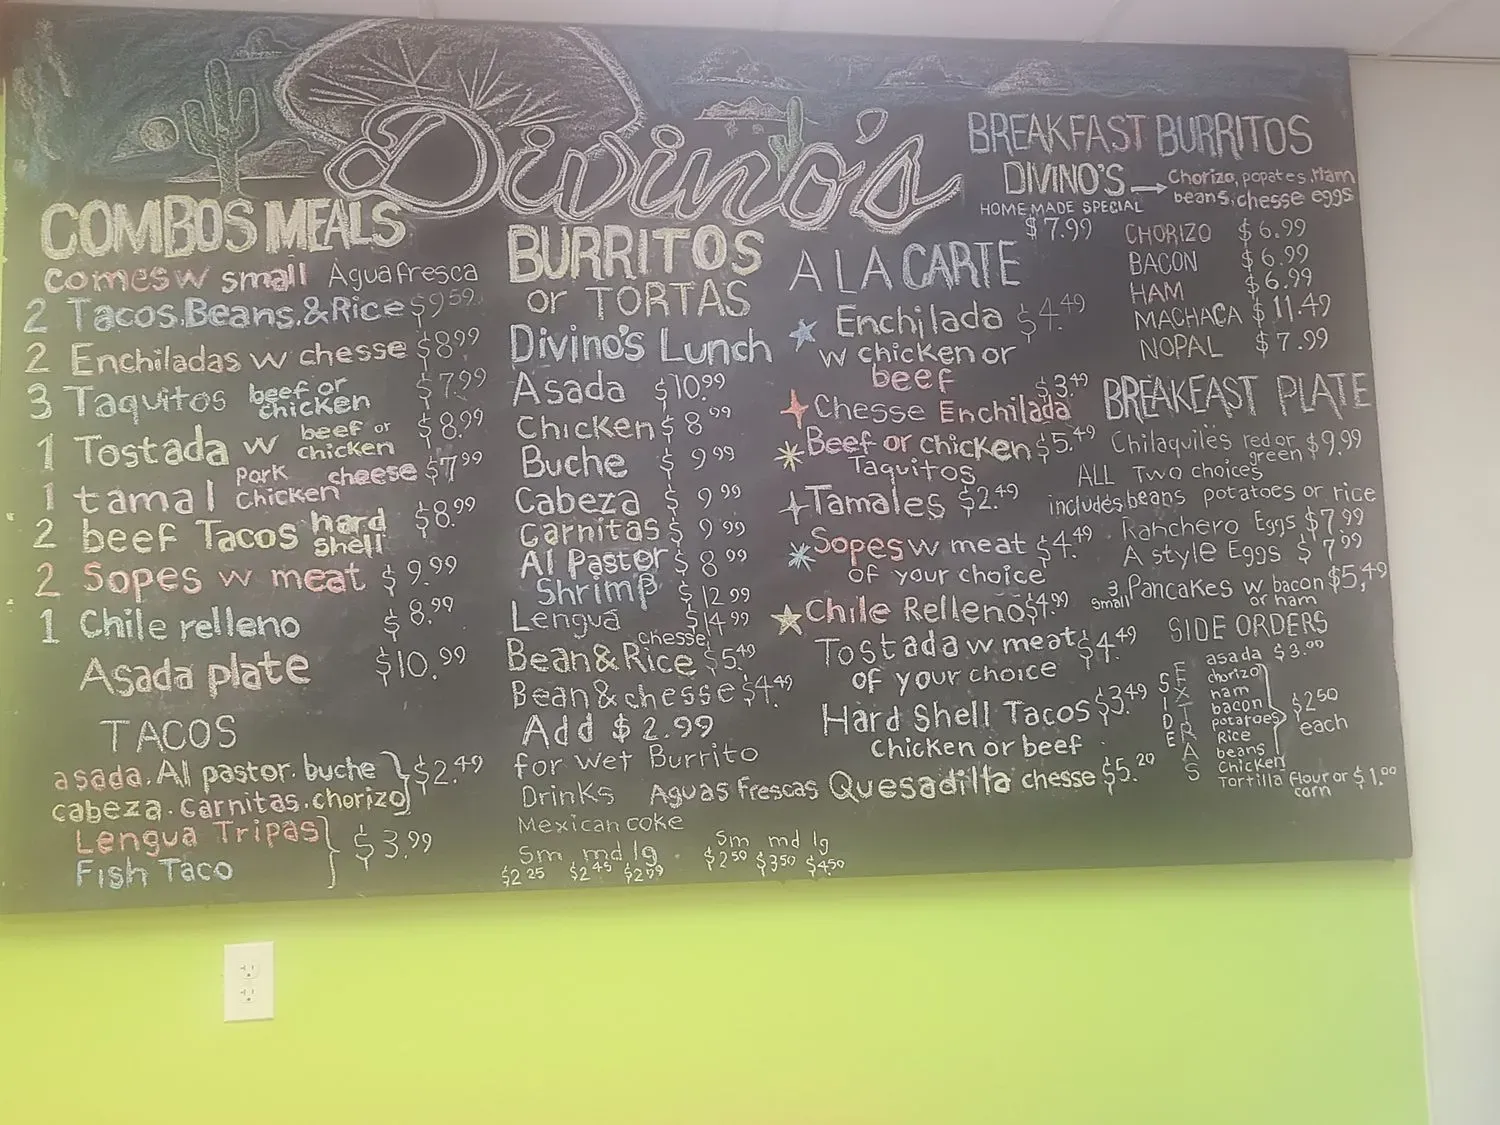 Divino's
COMBOS MEALS
comes w small Agua fresca
2 Tacos.Beans.&Rice $9.59
2 Enchiladas w chesse $8.99
3 Taquitos beef or chicken $7.99
1 Tostada w beef or chicken $8.99
1 tamal Pork Chicken cheese $7.99
2 beef Tacos hard shell $8.99
2 Sopes w meat $9.99
1 Chile relleno $8.99
Asada plate $10.99
TACOS
asada. Al pastor. buche
cabeza. carnitas. chorizo $2.49
Lengua Tripas
Fish Taco $3.99
BURRITOS
or TORTAS
Divino's Lunch
Asada $10.99
Chicken $8.99
Buche $9.99
Cabeza $9.99
Carnitas $9.99
Al Pastor $8.99
Shrimp $12.99
Lengua $14.99
Bean&Rice chesse $5.49
Bean&chesse $4.49
Add $2.99
for wet Burrito
Drinks
Mexican coke
Sm md lg
$2.25 $2.45 $2.99
Aguas Frescas
Sm md lg
$2.50 $3.50 $4.50
A LA CARTE
Enchilada $4.49
w chicken or
beef
Chesse Enchilada $3.49
Beef or chicken $5.49
Taquitos
Tamales $2.49
Sopes w meat $4.49
of your choice
Chile Relleno $4.99
Tostada w meat $4.49
of your choice
Hard Shell Tacos $3.49
chicken or beef
Quesadilla chesse $5.20
BREAKFAST BURRITOS
DIVINO'S → Chorizo, popates, Ham
beans, chesse eggs
HOME MADE SPECIAL
$7.99
CHORIZO $6.99
BACON $6.99
HAM $6.99
MACHACA $11.49
NOPAL $7.99
BREAKFAST PLATE
Chilaquiles red or green $9.99
ALL Two choices
includes beans potatoes or rice
Ranchero Eggs $7.99
A style Eggs $7.99
3 small Pancakes w bacon or ham $5,49
SIDE ORDERS
SIDE EXTRAS
asada $3.00
chorizo
ham
bacon
potatoes
Rice
beans
Chicken
$2.50
each
Tortilla flour or corn $1.00